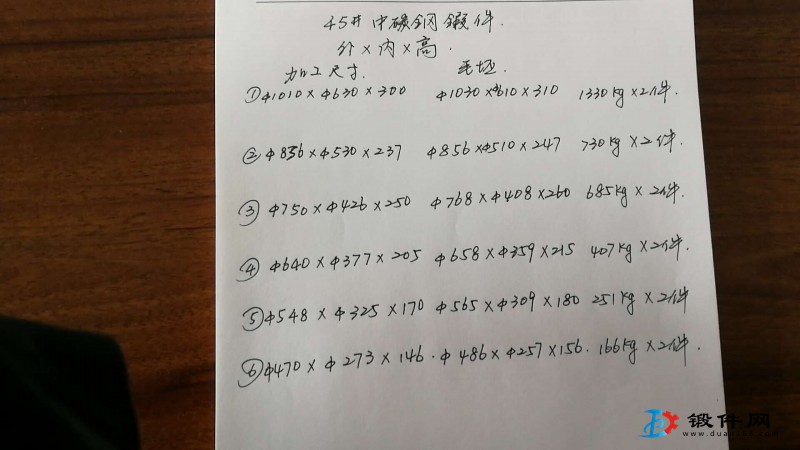 45# 中碳钢锻件.
外×内×高.
加工尺寸. 毛坯.
①Φ1010×Φ630×300 Φ1030×Φ610×310 1330kg×2件.
②Φ836×Φ530×237 Φ856×Φ510×247 730kg×2件.
③Φ750×Φ426×250 Φ768×Φ408×260 685kg×2件.
④Φ640×Φ377×205 Φ658×Φ359×215 407kg×2件.
⑤Φ548×Φ325×170 Φ565×Φ309×180 251kg×2件
⑥Φ470×Φ273×146. Φ486×Φ257×156. 166kg×2件.
锻件网